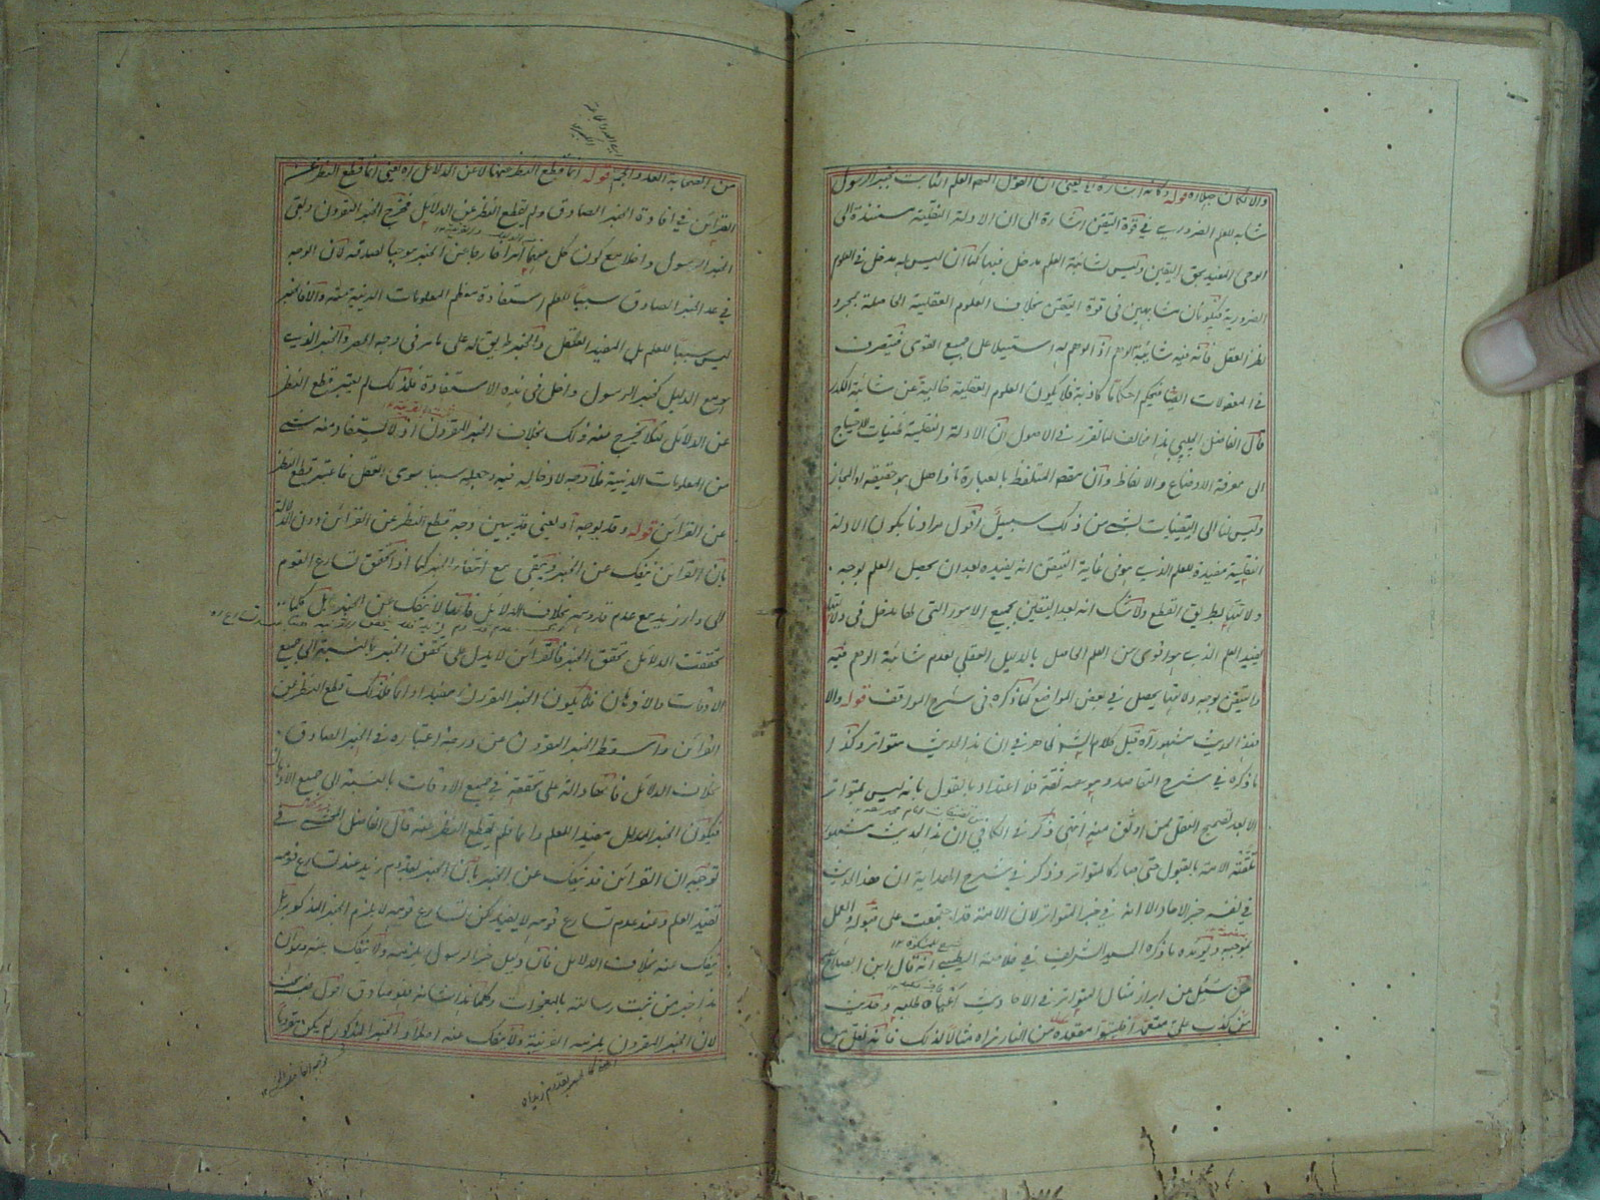 والا لكان جهلا اه قوله وكانه اشارة الى يعني ان القول بان العلم الثابت بخبر الرسول
مشابه للعلم الضروري في قوة التيقن اشارة الى ان الادلة النقلية مستندة الى
الوحي المفيد بحق اليقين وليس لشائبة العلم مدخل فيها كما ان ليس له مدخل في العلوم
الضرورية فيكونان مشابهين في قوة التيقن بخلاف العلوم العقلية الحاصلة بمجرد
نظر العقل فانه فيه شائبة الوهم اذ الوهم له استيلاء على جميع القوى فيتصرف
في المعقولات ايضا فيحكم احكاما كاذبة فلا يكون العلوم العقلية خالية عن شائبة الكدر
قال الفاضل الجلبي هذا مخالف لما تقرر في الاصول ان الادلة النقلية ظنيات للاحتياج
الى معرفة الاوضاع والالفاظ وان مقصد المتلفظ بالعبارة ماذا هل هو حقيقة او المجاز
وليس لنا الى اليقينيات بشيء من ذلك سبيل اقول مرادنا بكون الادلة
النقلية مفيدة للعلم الذي هو في غاية التيقن انه يفيده بعد ان يحصل العلم بوجه
دلالتها بطريق القطع ولا شك انه بعد التيقن بجميع الامور التي لها مدخل في دلالتها
يفيد العلم الذي هو اقوى من العلم الحاصل بالدليل العقلي لعدم شائبة الوهم فيه
والتيقن بوجه دلالتها يحصل في بعض المواضع كما ذكره في شرح المواقف قوله والا
فهذا الحديث مشهور اه قيل كلام الشارح ظاهر في ان هذا الحديث متواتر وكذا
ما ذكره في شرح المقاصد وهو عمه ثقة فلا اعتداد بالقول بانه ليس بمتواتر
الا بعد تصحيح النقل ممن اوثق منه انتهى وذكر في الكافي ان هذا الحديث مشهور
تلقته الامة بالقبول حتى صار كالمتواتر وذكر في شرح الهداية ان هذا الحديث
في نفسه خبر الاحاد الا انه في خبر المتواتر لان الامة قد اجتمعت على قبوله والعمل
بموجبه ويؤيده ما ذكره السيد الشريف في خلاصة الطيبي انه قال ابن الصلاح
من سئل من ابراز مثال لمتواتر في الاحاديث اعياه طلبه وحديث
من كذب علي متعمدا فليتبوأ مقعده من النار نراه مثالا لذلك فانه نقل من
من الصحابة العدد الجم قوله انما قطع النظر عنها لا عن الدلائل اه يعني انما قطع النظر عن
القرائن في افادة الخبر الصادق ولم يقطع النظر عن الدلائل فخرج الخبر المقرون وبقي
الخبر الرسول داخلا مع كون كل منهما امرا خارجا عن الخبر موجبا لصدقه لان الوجه
في عد الخبر الصادق سببا للعلم استفادة معظم المعلومات الدينية منه والا فالخبر
ليس سببا للعلم بل المفيد العقل والخبر طريق له على ما مر في وجه الحصر والخبر الذي
هو مع الدليل كخبر الرسول داخل في هذه الاستفادة فلذلك لم يعتبر قطع النظر
عن الدلائل لئلا يخرج منه ذلك بخلاف الخبر المقرون اذ لا يستفاد منه شيء
من المعلومات الدينية فلا وجه لادخاله فيه وجعله سببا سوى العقل فاعتبر قطع النظر
عن القرائن قوله وقد يوجه اه يعني قد يبين وجه قطع النظر عن القرائن دون الدلائل
بان القرائن تنفك عن الخبر وتبقى مع انتفاء الخبر كما اذا تحقق تسارع القوم
الى دار زيد مع عدم قدومه بخلاف الدلائل فانها لا تنفك عن الخبر بل كلما
تحققت الدلائل تحقق الخبر فالقرائن لا يدل على تحقق الخبر بالنسبة الى جميع
الاوقات والاذهان فلا يكون الخبر المقرون مفيدا دائما فلذلك قطع النظر عن
القرائن واسقط الخبر المقرون من درجة اعتباره في الخبر الصادق
بخلاف الدلائل فانها دالة على تحققه في جميع الاوقات بالنسبة الى جميع الاذهان
فيكون الخبر المدلل مفيدا للعلم دائما فلم يقطع النظر عنه قال الفاضل المحشي في
توجيه ان القرائن قد تنفك عن الخبر بان الخبر بقدوم زيد عند تسارع قومه
تفيد العلم وعند عدم تسارع قومه لا يفيد لكن تسارع قومه لا يلزم الخبر المذكور بل
ينفك عنه بخلاف الدلائل فان دليل خبر الرسول يلزمه ولا ينفك عنه وهو ان
هذا خبر من ثبت رسالته بالمعجزات وكلما هذا شانه فهو صادق اقول
لان الخبر المقرون يلزمه القرينة ولا ينفك عنه اصلا والخبر المذكور لم يكن مقرونا